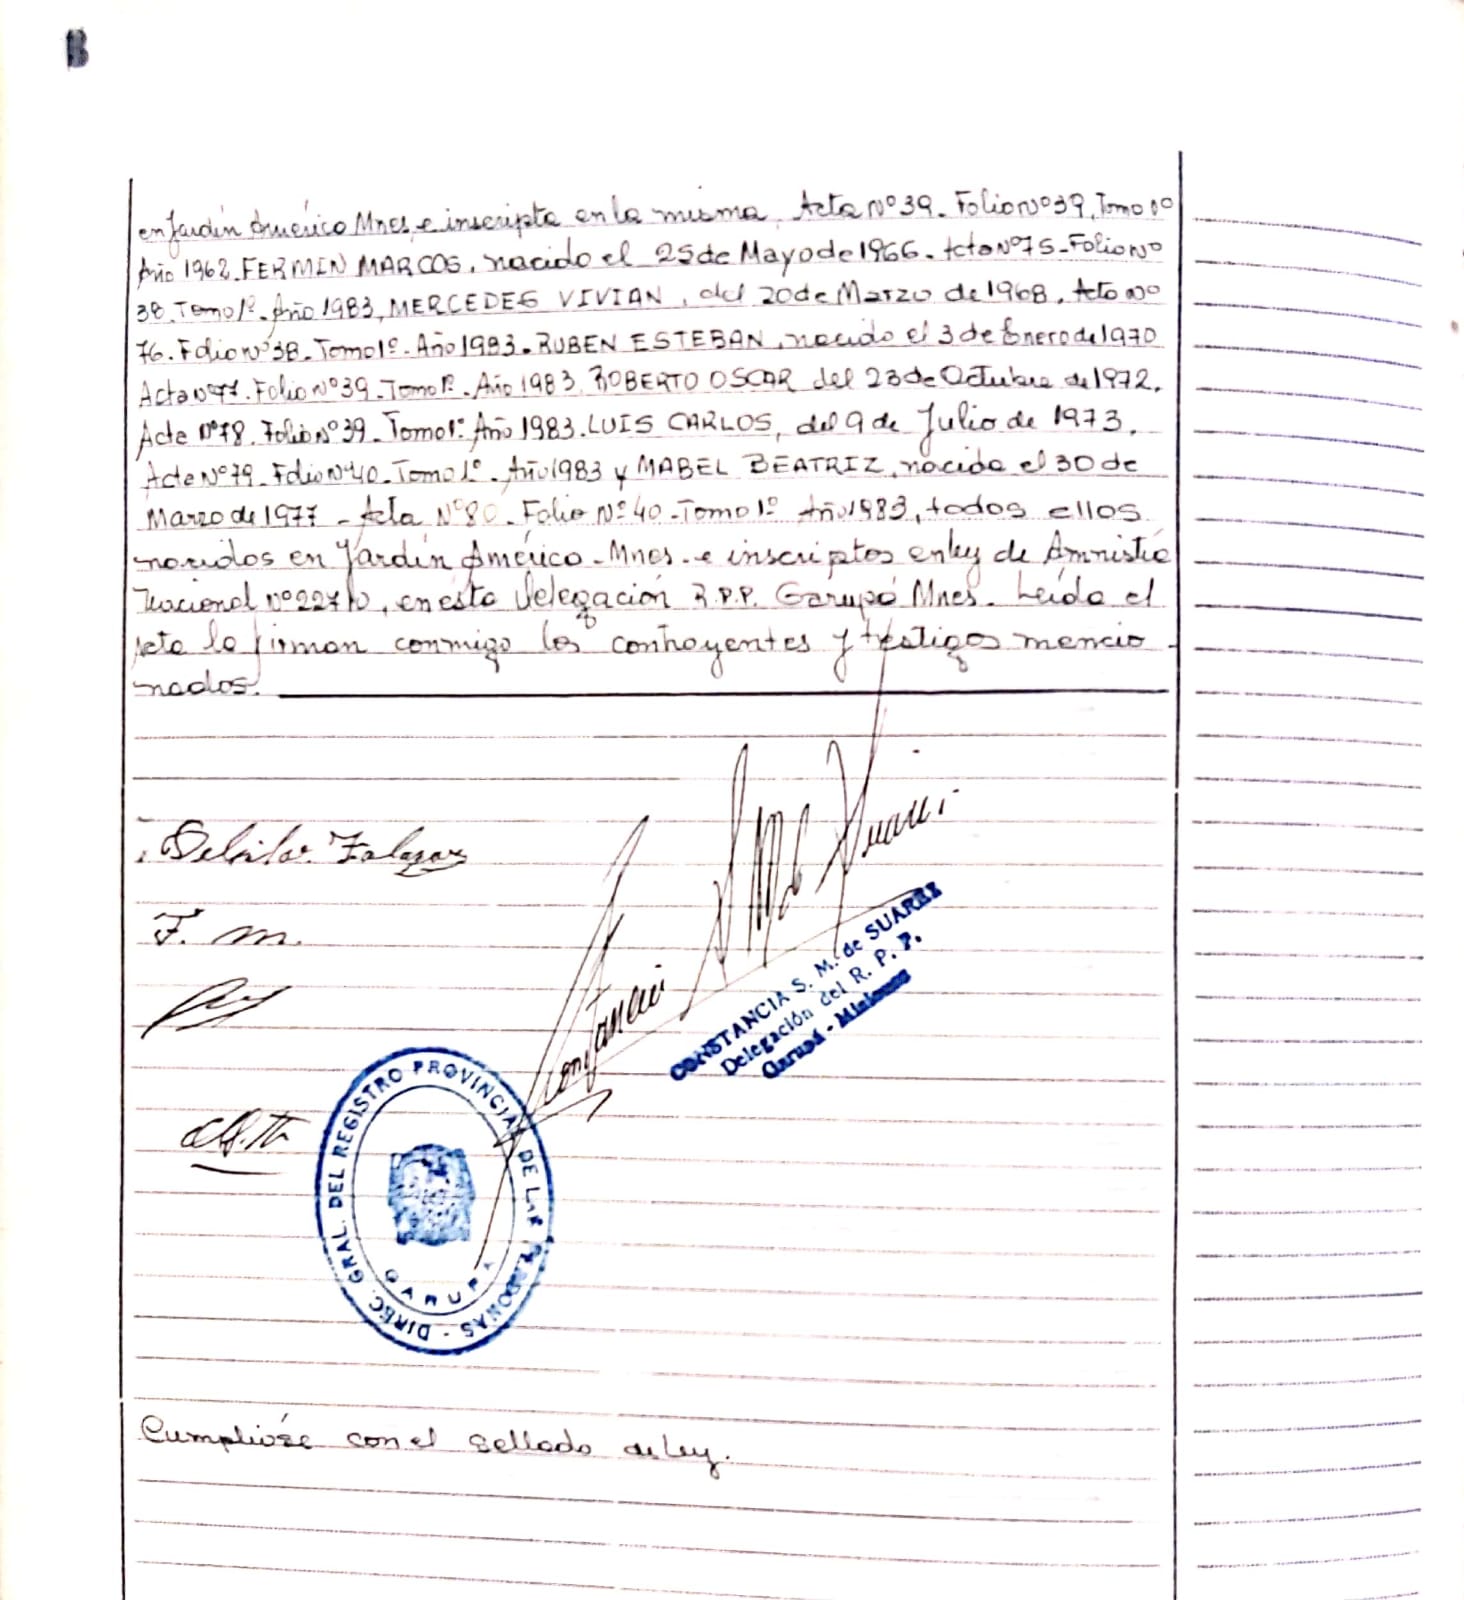 B
en Jardín América Mnes, e inscripta en la misma, Acta Nº 39. Folio Nº 39, Tomo 1º
Año 1962. FERMIN MARCOS, nacido el 25 de Mayo de 1966. Acta Nº 75 - Folio Nº
38. Tomo 1º. Año 1983, MERCEDES VIVIAN, del 20 de Marzo de 1968, Acta Nº
76. Folio Nº 38. Tomo 1º. Año 1983. RUBEN ESTEBAN, nacido el 3 de Enero de 1970
Acta Nº 77. Folio Nº 39. Tomo 1º. Año 1983. ROBERTO OSCAR del 23 de Octubre de 1972.
Acta Nº 78. Folio Nº 39. Tomo 1º. Año 1983. LUIS CARLOS, del 9 de Julio de 1973.
Acta Nº 79. Folio Nº 40. Tomo 1º. Año 1983 y MABEL BEATRIZ, nacida el 30 de
Marzo de 1977 - Acta Nº 80. Folio Nº 40 - Tomo 1º Año 1983, todos ellos
nacidos en Jardín América - Mnes. e inscriptos en ley de Amnistía
Nacional Nº 22710, en esta Delegación R.P.P. Garupá Mnes. Leída el
Acta la firman conmigo los contrayentes y testigos mencio-
nados.
F. M.
CONSTANCIA S. M. de SUAREZ
Delegación del R. P. P.
Garupá - Misiones
DIREC. GRAL. DEL REGISTRO PROVINCIAL DE LAS PERSONAS -
GARUPA
Cumplióse con el sellado de ley.